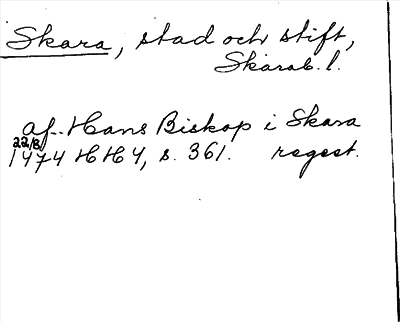 Skara, stad och stift,
Skarab. l.
af Hans Biskop i Skara
22/8
1474 HH 4, s. 361. regest.